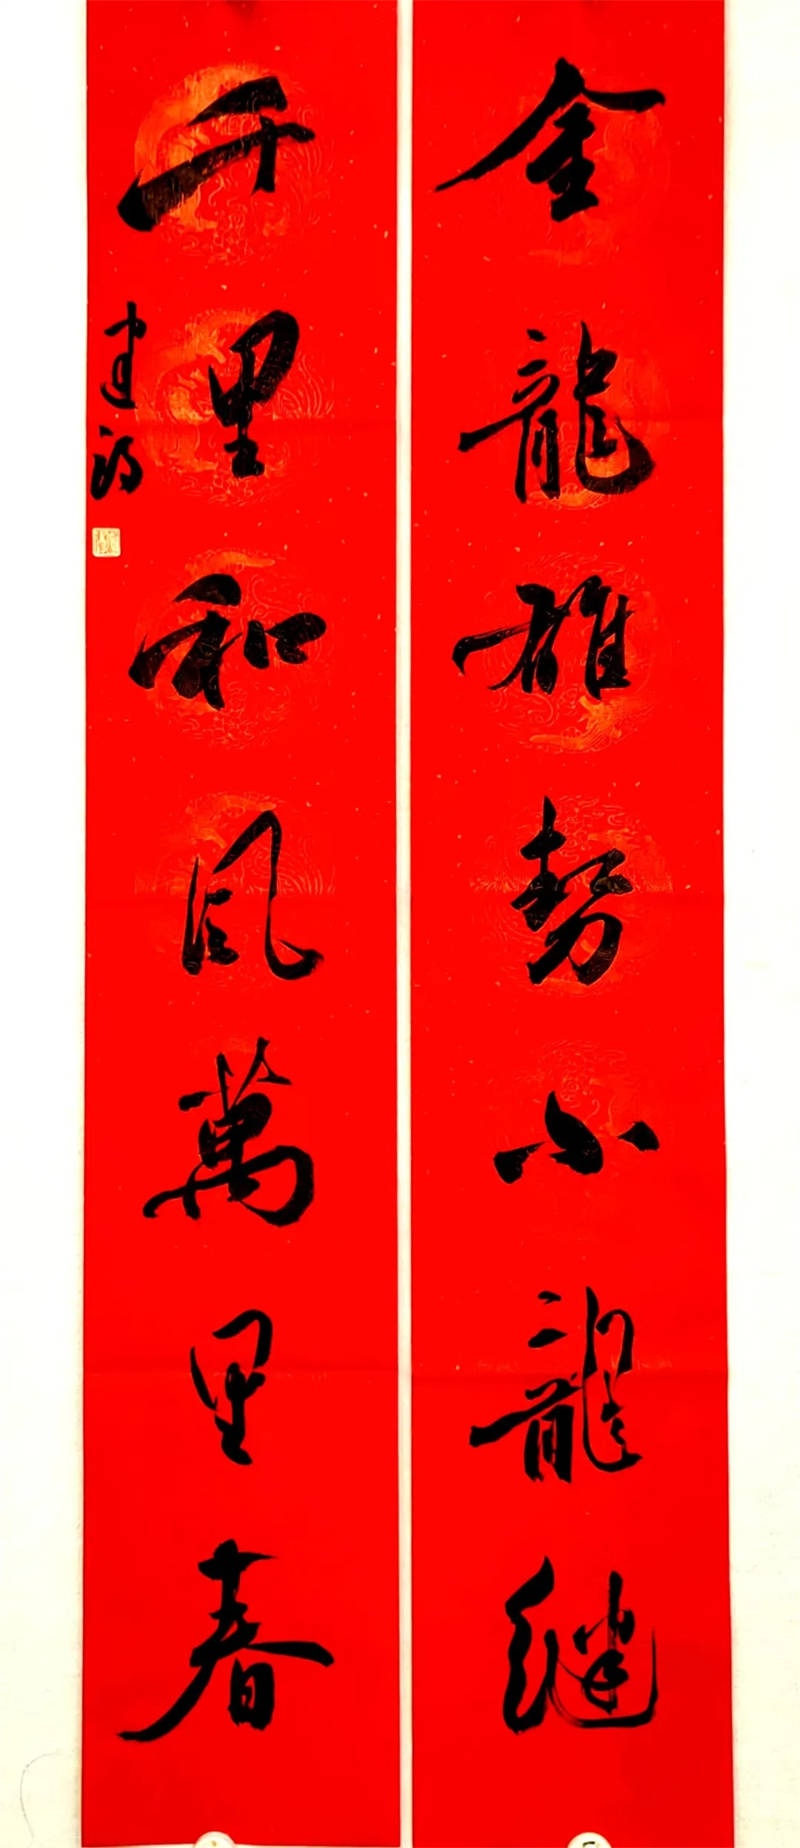 金龍雄勢小龍継
千里和風萬里春